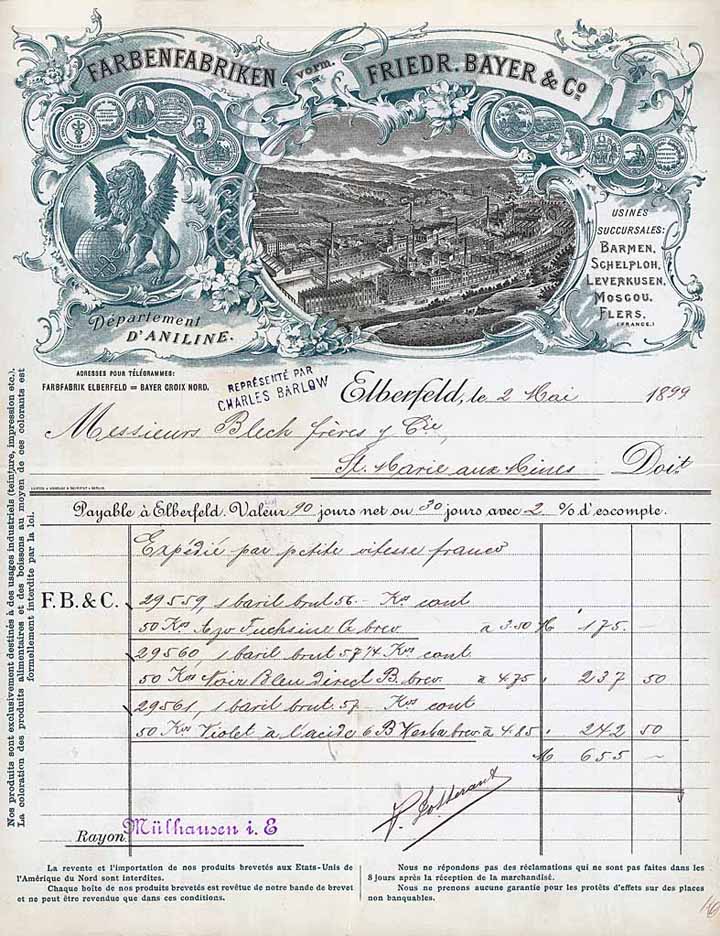 FARBENFABRIKEN vorm. FRIEDR. BAYER & Co.
USINES
SUCCURSALES:
BARMEN.
SCHELPLOH.
LEVERKUSEN.
MOSCOU.
FLERS.
(FRANCE.)
Département
D'ANILINE.
ADRESSES POUR TÉLÉGRAMMES:
FARBFABRIK ELBERFELD = BAYER CROIX NORD.
REPRÉSENTÉ PAR
CHARLES BARLOW
Elberfeld, le 2 Mai 1899
Messieurs Blech frères & Cie
St. Marie aux Mines Doit
Payable à Elberfeld. Valeur 90 jours net ou 30 jours avec 2 % d'escompte.
Expédié par petite vitesse franco
F.B.&C. 29559, 1 baril brut 56.- Kos cont
50 Kos Azo Fuchsine G brev. à 3.50 M 175.-
29560 1 baril brut 57 1/4 Kos cont
50 Kos Noir Bleu direct B. brev. à 4.75 " 237 50
29561, 1 baril brut. 57.- Kos cont
50 Kos Violet à l'acide 6 B brev à 4.85 " 242 50
M 655 -
Rayon Mülhausen i. E
Nos produits sont exclusivement destinés à des usages industriels (teinture, impression etc.).
La coloration des produits alimentaires et des boissons au moyen de ces colorants est
formellement interdite par la loi.
La revente et l'importation de nos produits brevetés aux Etats-Unis de
l'Amérique du Nord sont interdites.
Chaque boîte de nos produits brevetés est revêtue de notre bande de brevet
et ne peut être revendue que dans ces conditions.
Nous ne répondons pas des réclamations qui ne sont pas faites dans les
8 jours après la réception de la marchandise.
Nous ne prenons aucune garantie pour les protêts d'effets sur des places
non banquables.